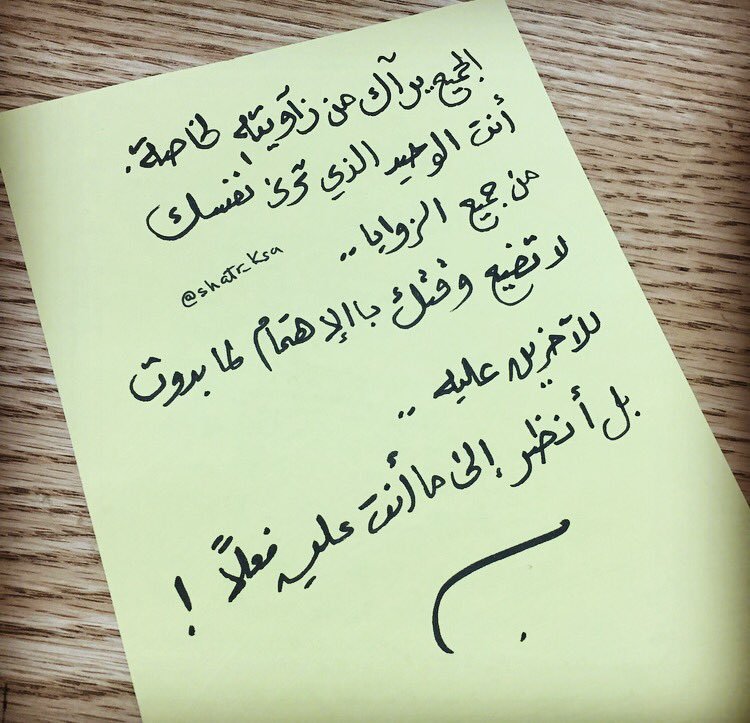 الجميع يرآك من زآويته الخاصة.
أنت الوحيد الذي ترى نفسك
من جميع الزوايا..
@shatr_ksa
لا تضيع وقتك باالإهتمام لما بدوت
للآخرين عليه ..
بل أنظر إلى ما أنت عليه فعلاً !